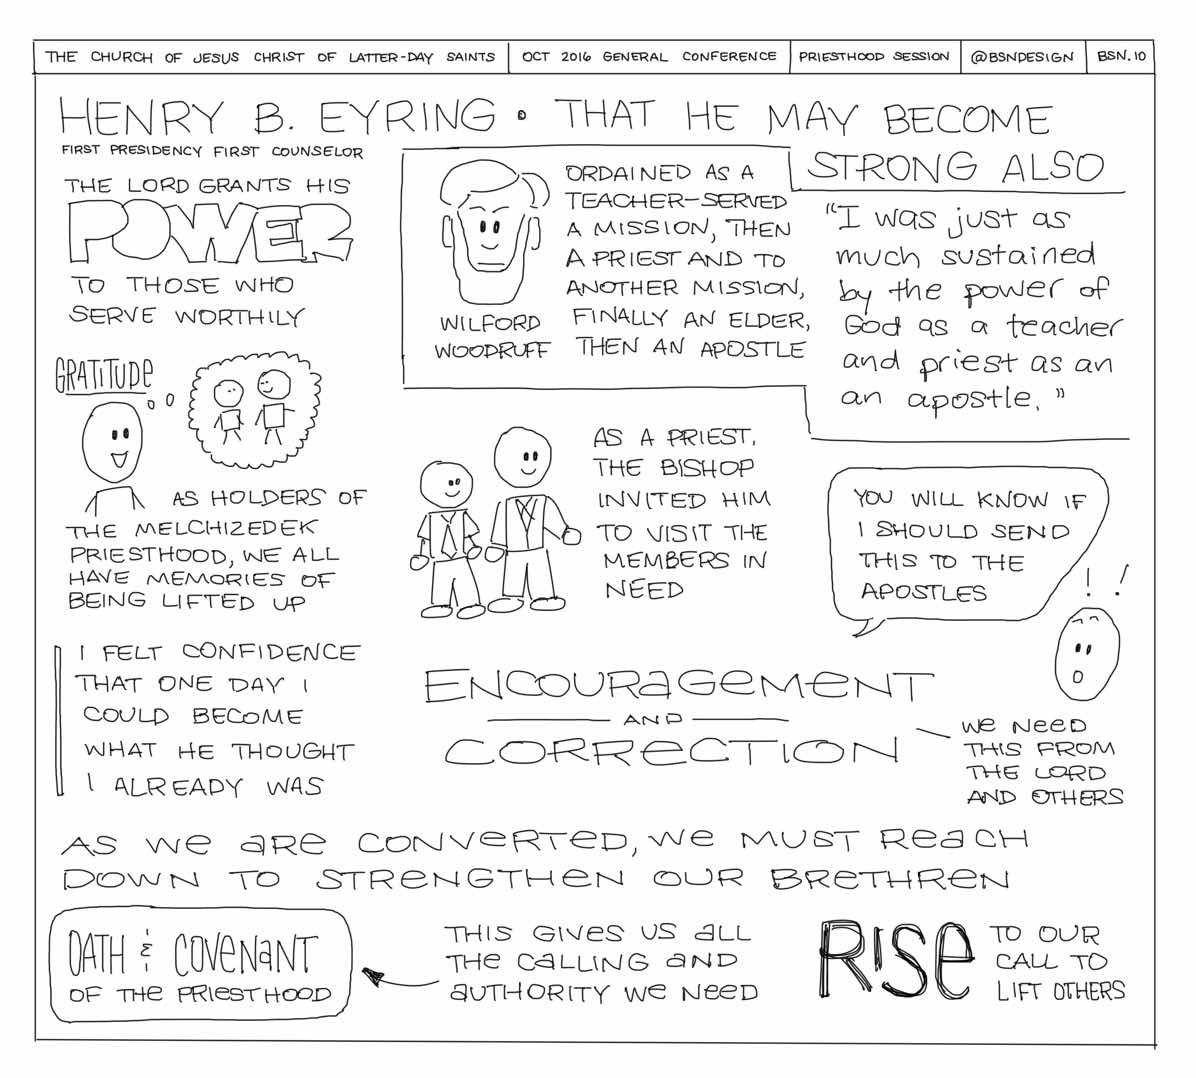 THE CHURCH OF JESUS CHRIST OF LATTER-DAY SAINTS
OCT 2016 GENERAL CONFERENCE
PRIESTHOOD SESSION
@BSNDESIGN
BSN.10
HENRY B. EYRING • THAT HE MAY BECOME
STRONG ALSO
FIRST PRESIDENCY FIRST COUNSELOR
THE LORD GRANTS HIS
POWER
TO THOSE WHO
SERVE WORTHILY
WILFORD
WOODRUFF
ORDAINED AS A
TEACHER-SERVED
A MISSION, THEN
A PRIEST AND TO
ANOTHER MISSION,
FINALLY AN ELDER,
THEN AN APOSTLE
"I was just as
much sustained
by the power of
God as a teacher
and priest as an
an apostle."
GRATITUDE
AS HOLDERS OF
THE MELCHIZEDEK
PRIESTHOOD, WE ALL
HAVE MEMORIES OF
BEING LIFTED UP
AS A PRIEST,
THE BISHOP
INVITED HIM
TO VISIT THE
MEMBERS IN
NEED
YOU WILL KNOW IF
I SHOULD SEND
THIS TO THE
APOSTLES
! !
I FELT CONFIDENCE
THAT ONE DAY I
COULD BECOME
WHAT HE THOUGHT
I ALREADY WAS
ENCOURAGEMENT
AND
CORRECTION
WE NEED
THIS FROM
THE LORD
AND OTHERS
AS WE ARE CONVERTED, WE MUST REACH
DOWN TO STRENGTHEN OUR BRETHREN
OATH & COVENANT
OF THE PRIESTHOOD
THIS GIVES US ALL
THE CALLING AND
AUTHORITY WE NEED
RISE
TO OUR
CALL TO
LIFT OTHERS